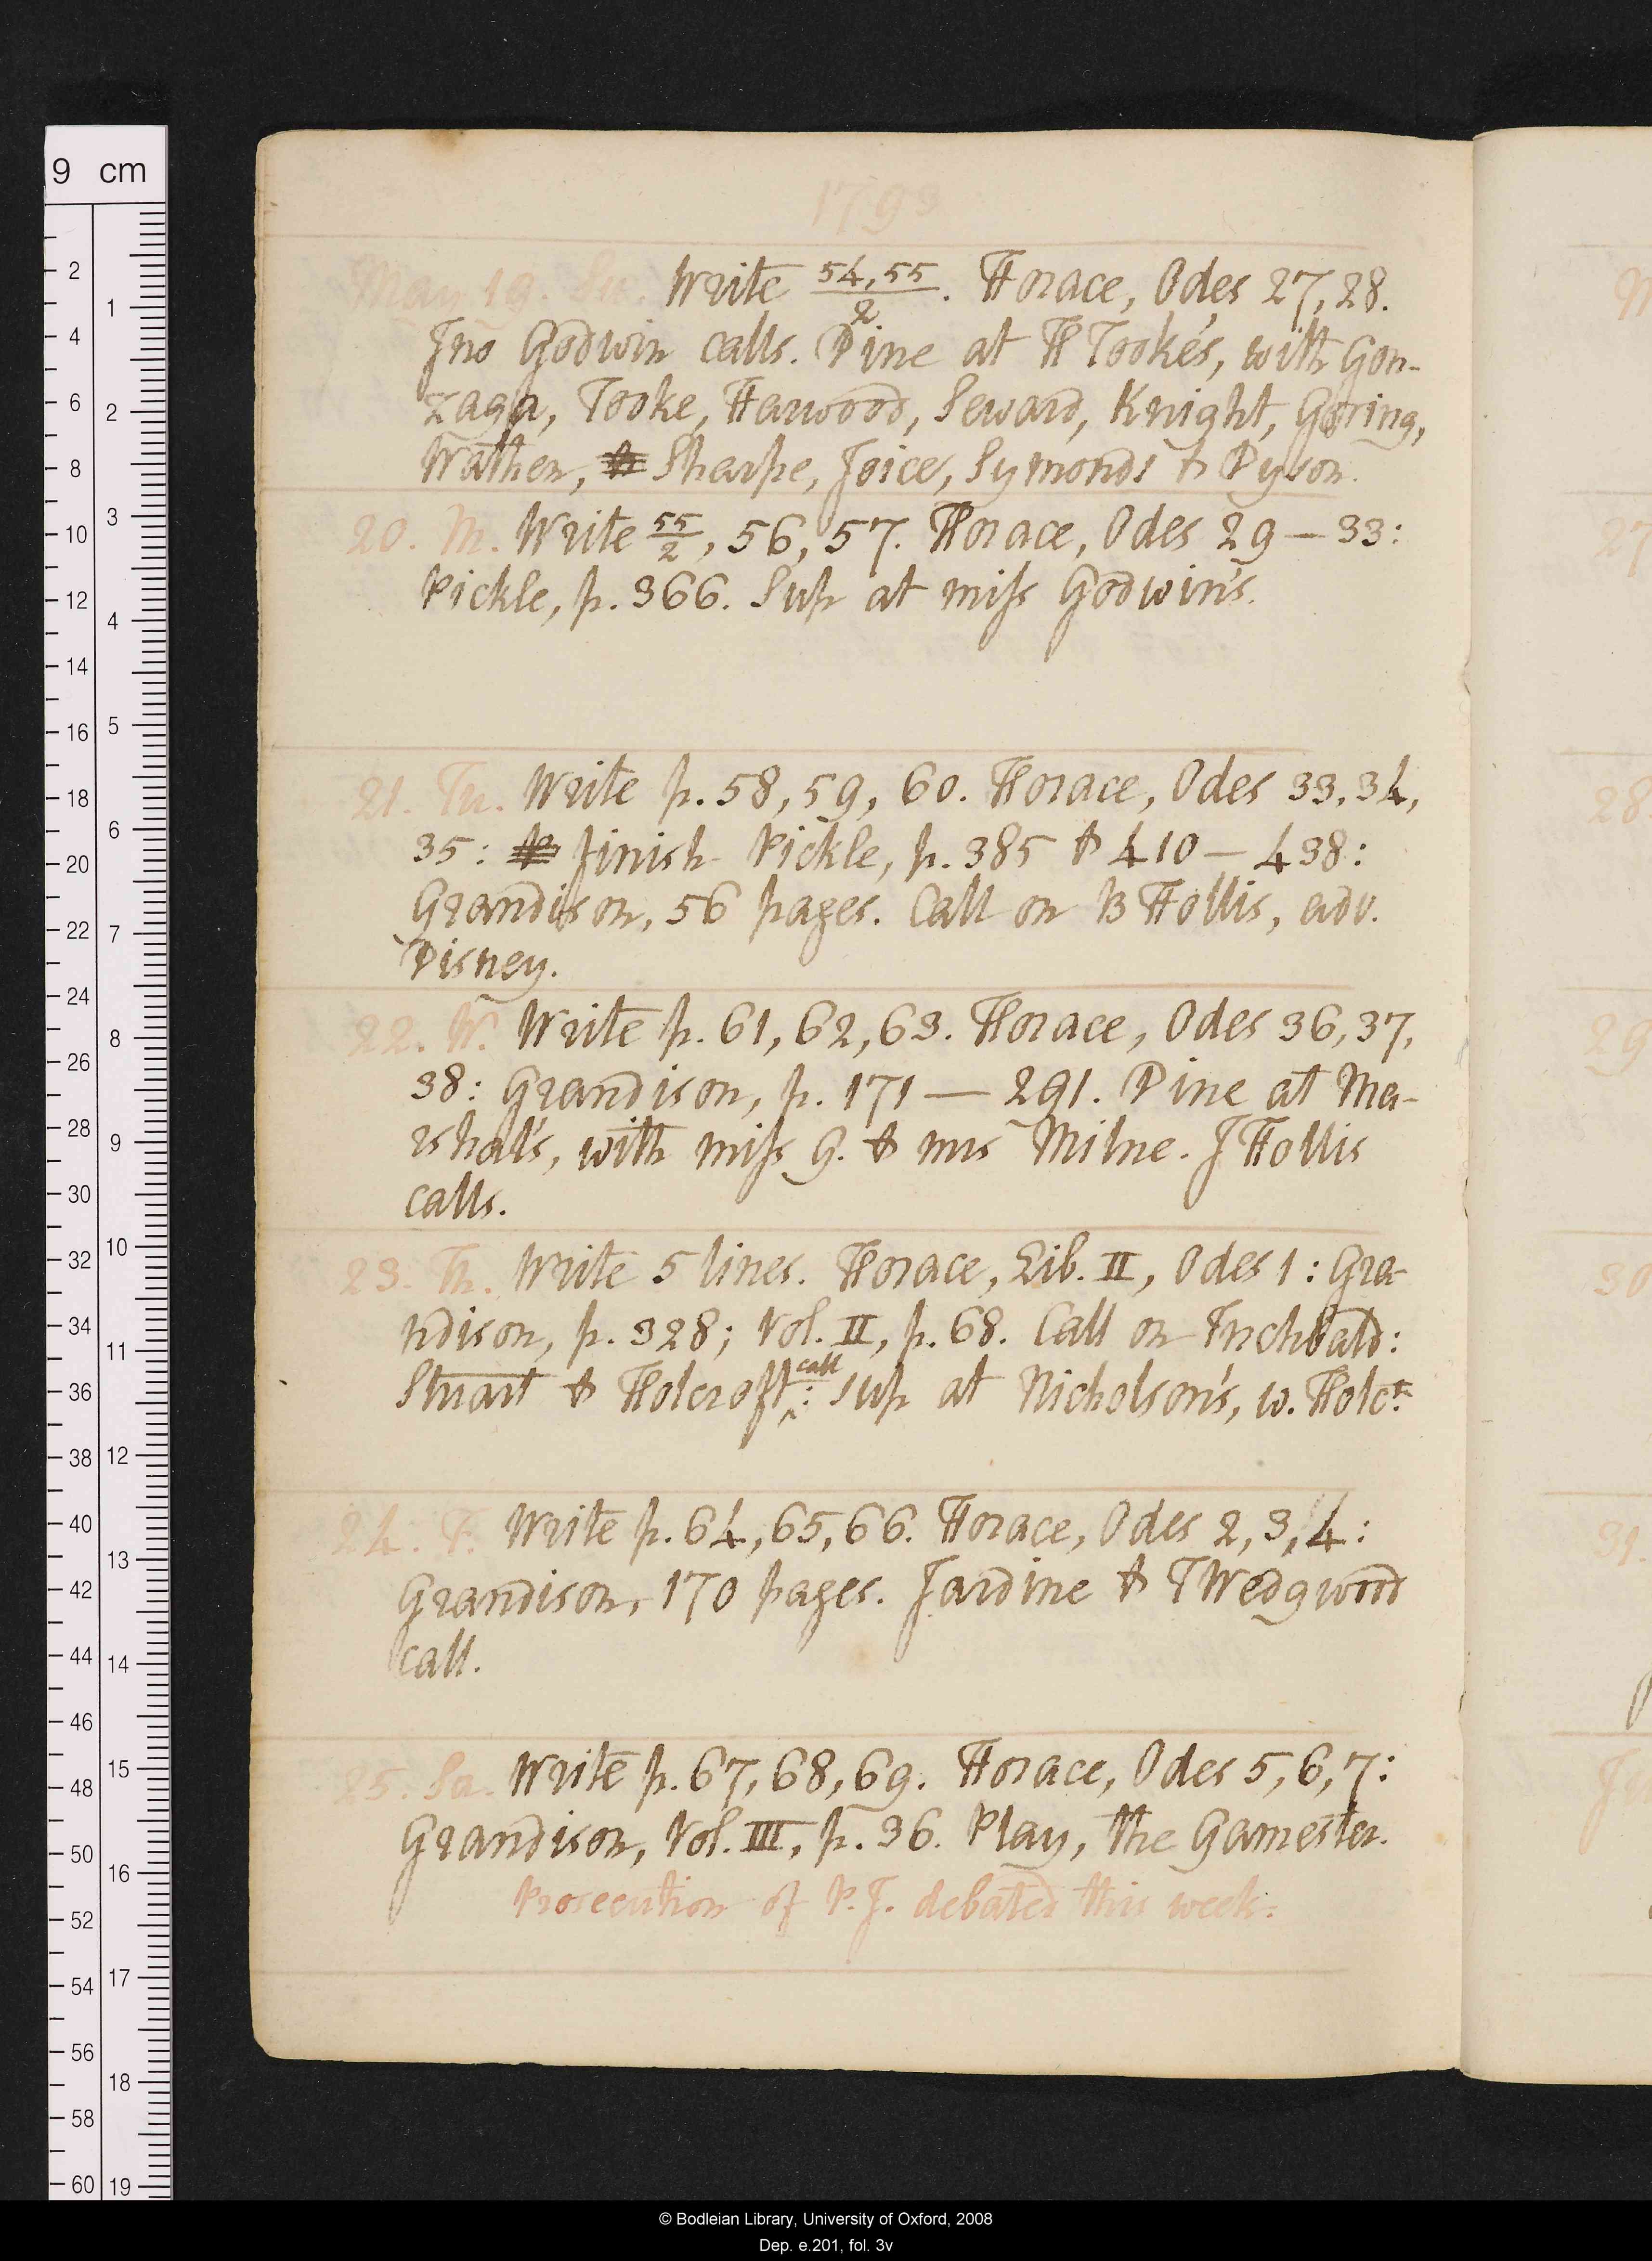 1793
May 19. Su. Write 54,55/2. Horace, Odes 27, 28.
Jno Godwin calls. Dine at H Tooke's, with Gon-
zaga, Tooke, Harwood, Seward, Knight, Goring,
Wathen, Sharpe, Joice, Symonds & Dyson.
20. M. Write 55/2, 56, 57. Horace, Odes 29 — 33:
Pickle, p. 366. Sup at miss Godwin's.
21. Tu. Write p. 58, 59, 60. Horace, Odes 33, 34,
35: finish Pickle, p. 385 & 410 — 438:
Grandison, 56 pages. Call on B Hollis, adv.
Disney.
22. W. Write p. 61, 62, 63. Horace, Odes 36, 37,
38: Grandison, p. 171 — 291. Dine at Ma-
rshal's, with miss G. & mrs Milne. J Hollis
calls.
23. Th. Write 5 lines. Horace, Lib. II, Odes 1: Gra-
ndison, p. 328; Vol. II, p. 68. Call on Inchbald:
Stuart & Holcroft call: sup at Nicholson's, w. Holct.
24. F. Write p. 64, 65, 66. Horace, Odes 2, 3, 4:
Grandison, 170 pages. Jardine & T Wedgwood
call.
25. Sa. Write p. 67, 68, 69. Horace, Odes 5, 6, 7:
Grandison, Vol. III, p. 36. Play, the Gamester.
Prosecution of P.J. debated this week.
9 cm
© Bodleian Library, University of Oxford, 2008
Dep. e.201, fol. 3v